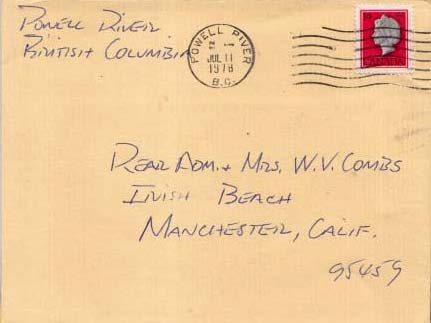 Powell River
British Columbia
POWELL RIVER
JUL 11
1978
B.C.
CANADA
Rear Adm. & Mrs. W.V. Combs
Irish Beach
Manchester, Calif.
95459